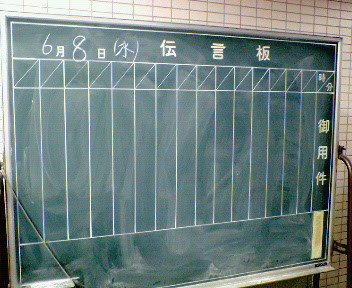 6月8日(水) 伝言板
時分
御用件